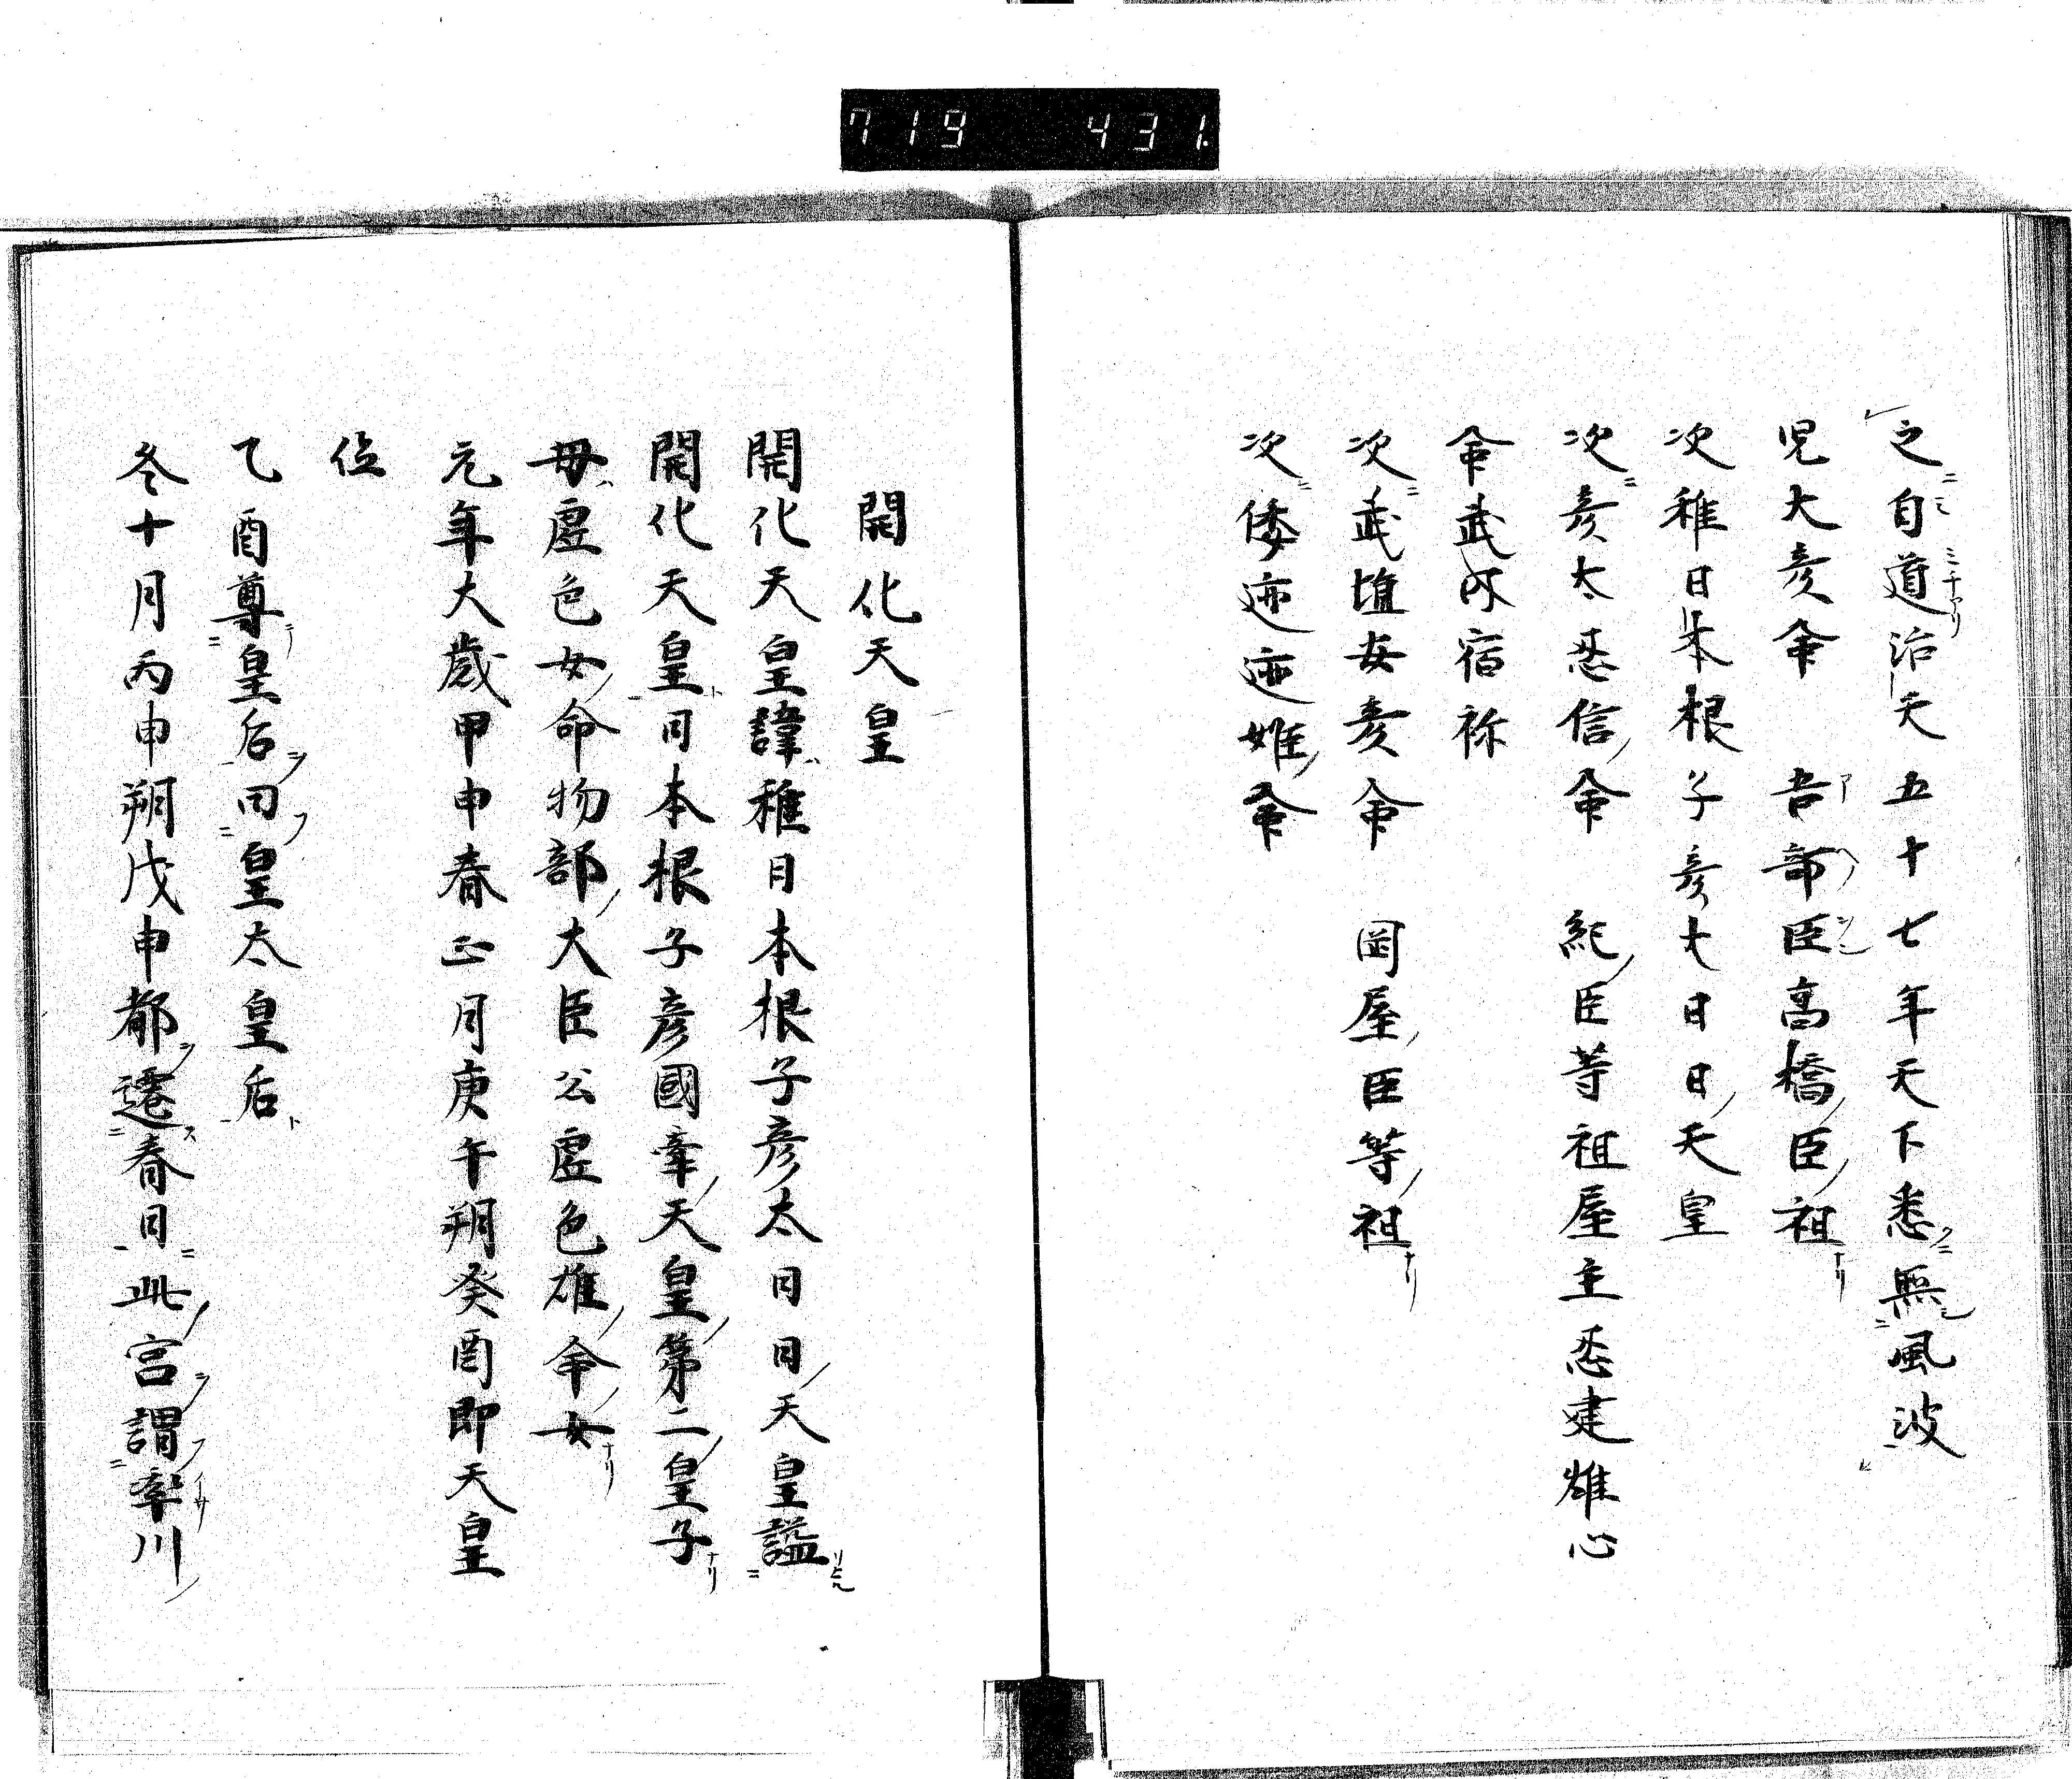 719 431.
之自道治天五十七年天下悉無風波
児大彦命 吉部臣高橋臣祖
次稚日本根子彦大日日天皇
次彦太忍信命 紀臣等祖屋主忍建雄心
命武内宿祢
次武埴安彦命 岡屋臣等祖
次倭迹迹姫命
開化天皇
開化天皇諱稚日本根子彦太日日天皇諡
開化天皇日本根子彦國牽天皇第二皇子
母虚色女命物部大臣公虚色雄命女
元年大歳甲申春正月庚午朔癸酉即天皇
位
乙酉尊皇后曰皇太皇后
冬十月丙申朔戊申都遷春日此宮謂率川